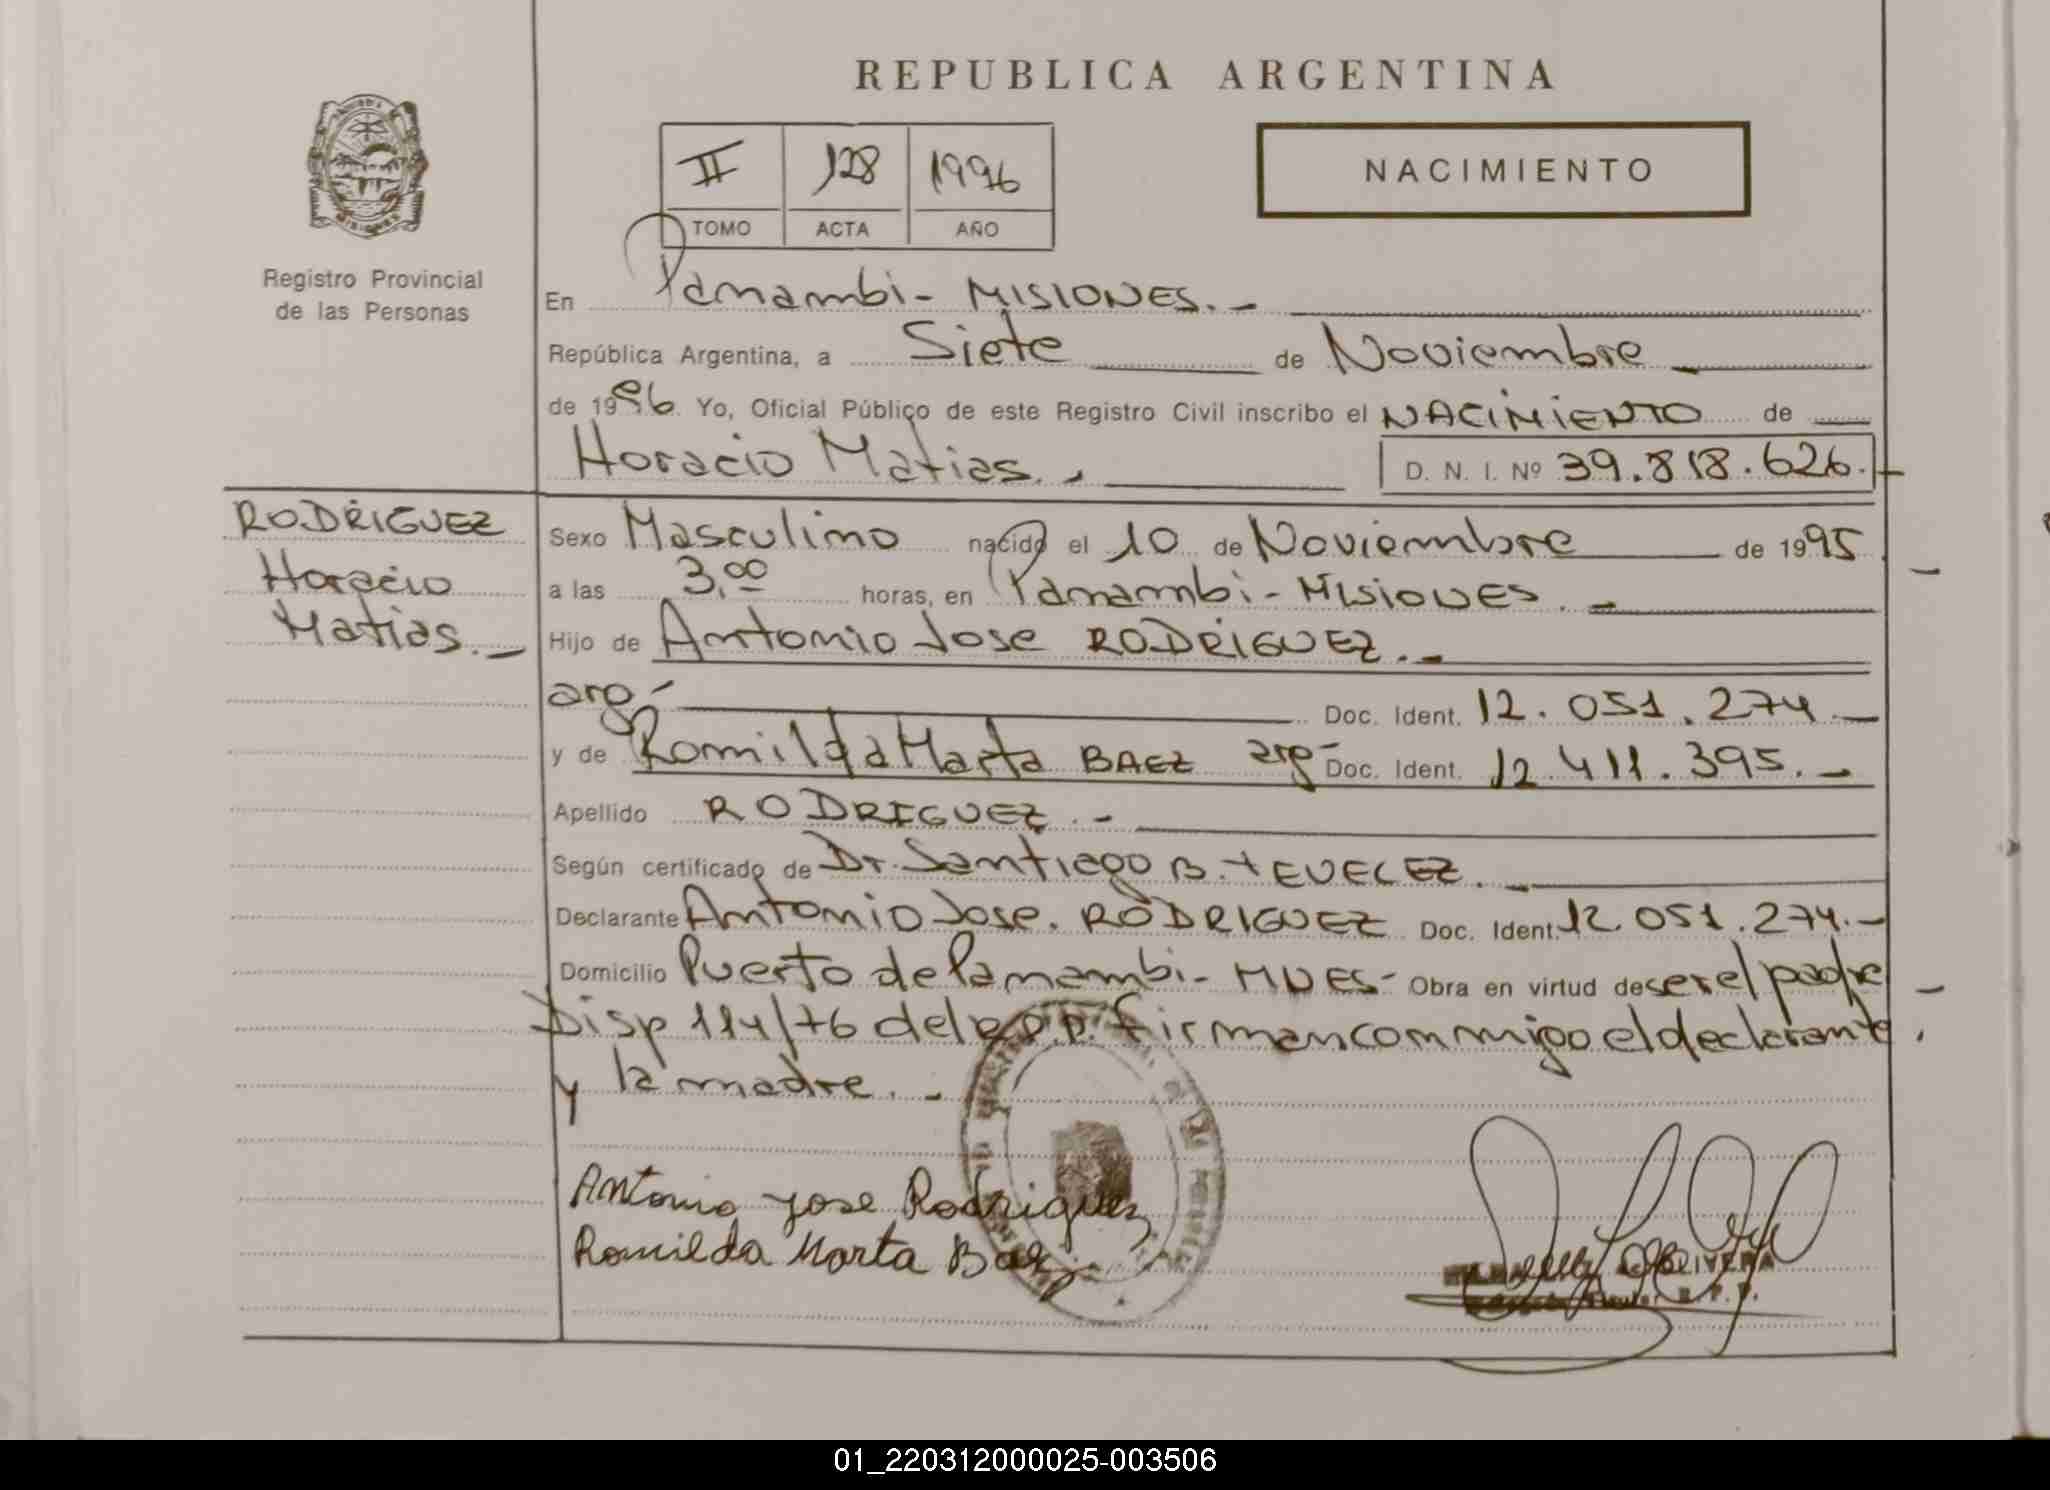 REPUBLICA ARGENTINA
NACIMIENTO
II 128 1996
TOMO ACTA AÑO
Registro Provincial
de las Personas
En Panambi - MISIONES. -
República Argentina, a Siete de Noviembre
de 1996. Yo, Oficial Público de este Registro Civil inscribo el NACIMIENTO de
Horacio Matias. - D. N. I. Nº 39.818.626.-
RODRIGUEZ
Horacio
Matias. -
Sexo Masculino nacido el 10 de Noviembre de 1995
a las 3,00 horas, en Panambi - MISIONES. -
Hijo de Antonio Jose RODRIGUEZ. -
arg- Doc. Ident. 12.051.274.-
y de Romilda Marta BAEZ arg- Doc. Ident. 12.411.395.-
Apellido RODRIGUEZ. -
Según certificado de Dr. Santiago B. -
Declarante Antonio Jose. RODRIGUEZ Doc. Ident. 12.051.274.-
Domicilio Puerto de Panambi - MNES - Obra en virtud de ser el padre -
Disp 114/76 del firman conmigo el declarante.
y la madre. -
Antonio Jose Rodriguez
Romilda Marta Baez
OLIVERA
R. P. P.
01_220312000025-003506